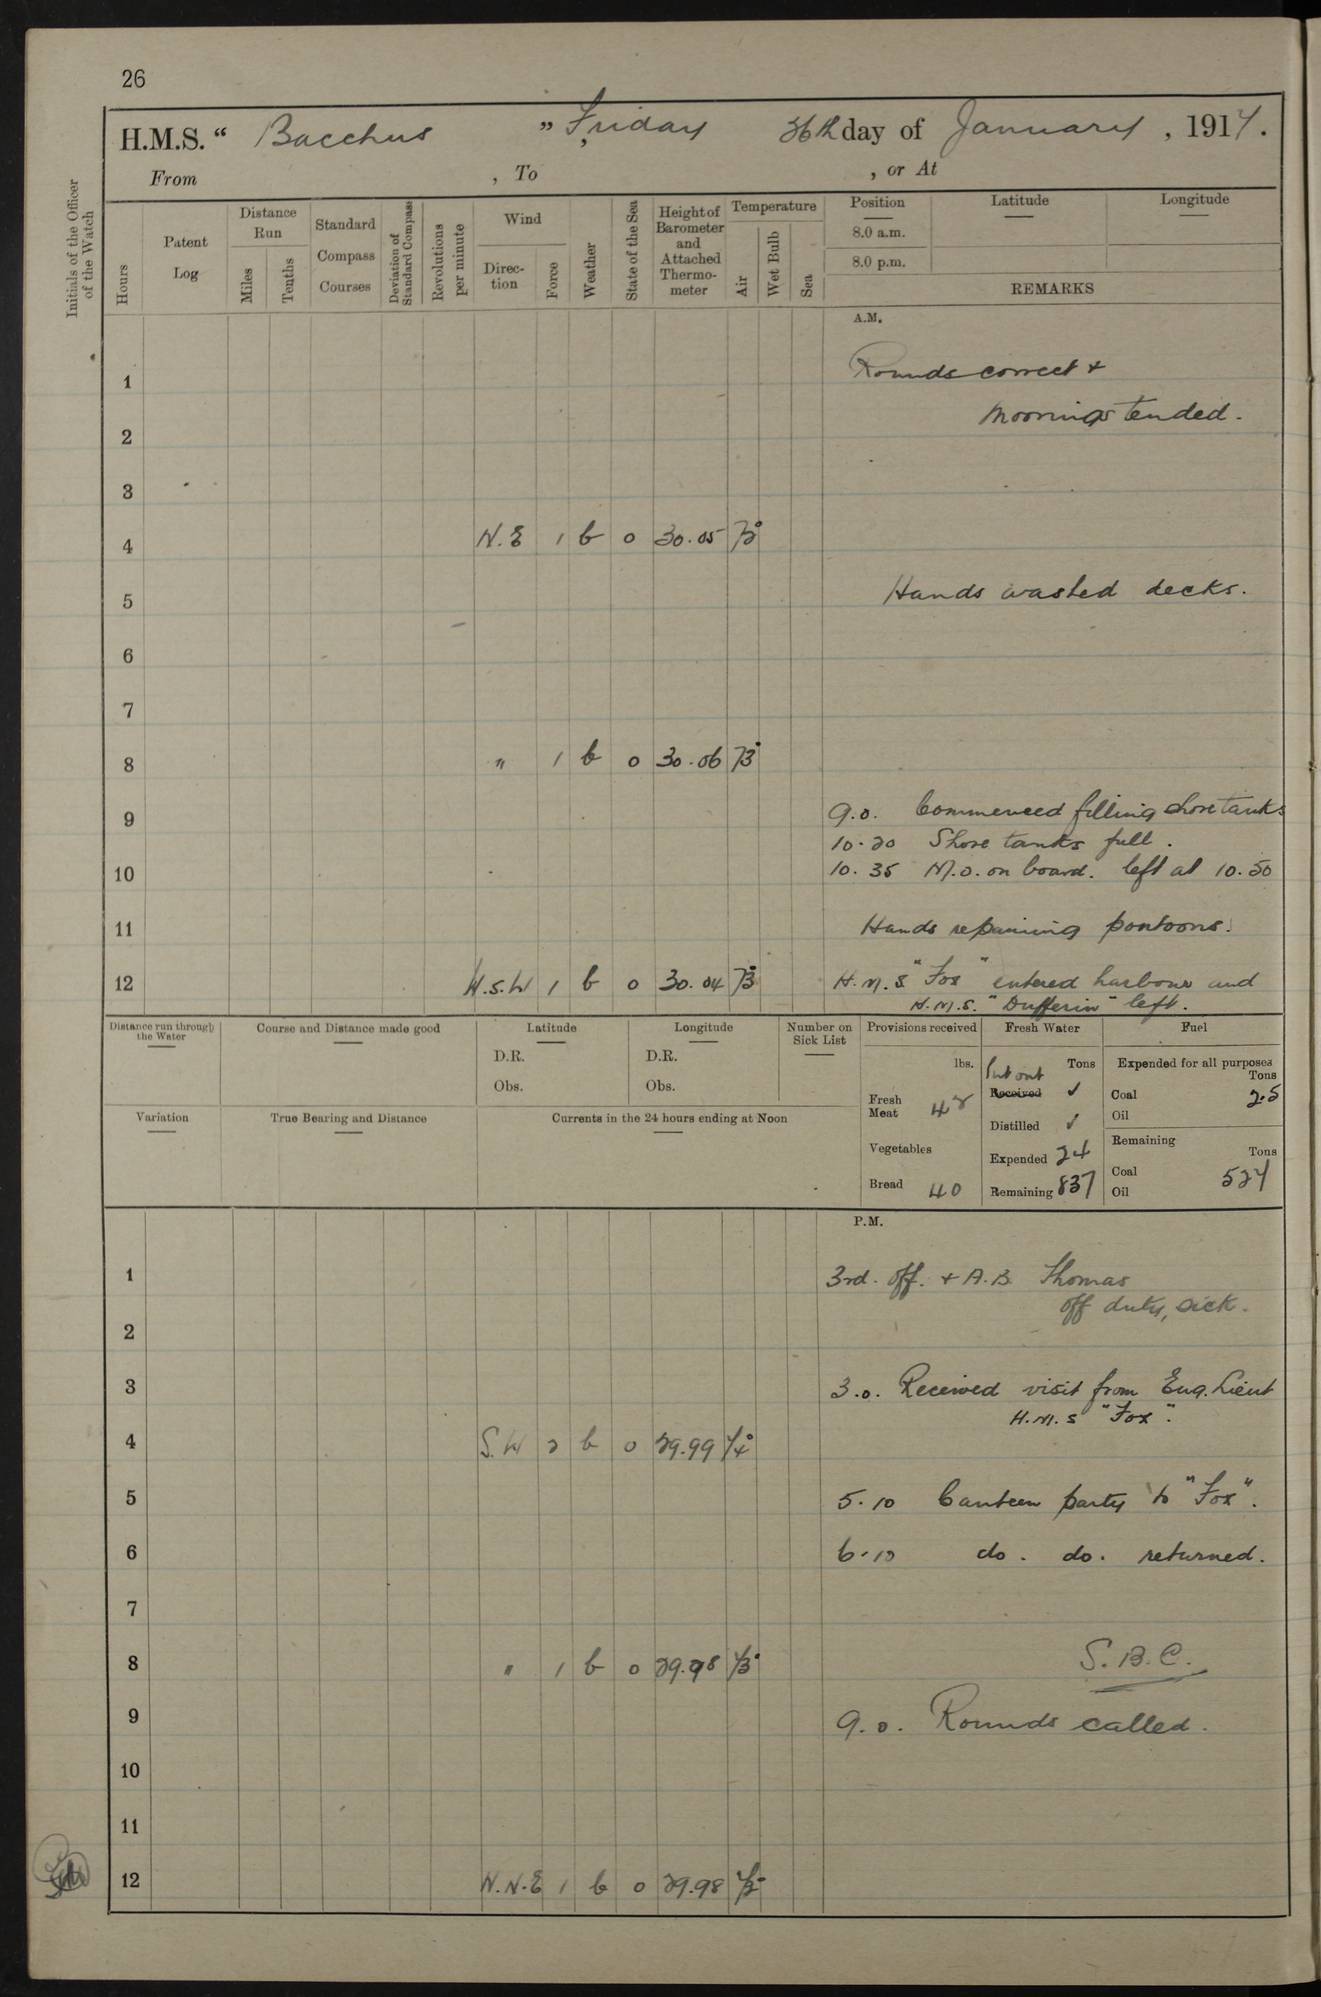 26
H.M.S. “ Bacchus ” Friday 26th day of January , 1917.
From , To , or At
Initials of the Officer of the Watch
Hours
Patent Log
Distance Run
Miles
Tenths
Standard Compass Courses
Deviation of Standard Compass
Revolutions per minute
Wind
Direc-tion
Force
Weather
State of the Sea
Height of Barometer and Attached Thermo-meter
Temperature
Air
Wet Bulb
Sea
Position
8.0 a.m.
8.0 p.m.
Latitude
Longitude
REMARKS
A.M.
1 Rounds correct +
moorings tended.
2
3
4 N.E 1 b 0 30.05 72°
5 Hands washed decks.
6
7
8 " 1 b 0 30.06 73°
9 9.0. Commenced filling shore tanks
10.20 Shore tanks full.
10 10.35 M.O. on board. left at 10.50
11 Hands repairing pontoons.
12 W.S.W 1 b 0 30.04 73° H.M.S "Fox" entered harbour and
H.M.S. "Dufferin" left.
Distance run through the Water
Course and Distance made good
Latitude
D.R.
Obs.
Longitude
D.R.
Obs.
Number on Sick List
Provisions received
lbs.
Fresh Meat 42
Vegetables
Bread 40
Fresh Water
Put out Tons
Received ✓
Distilled ✓
Expended 24
Remaining 837
Fuel
Expended for all purposes
Tons
Coal 2.5
Oil
Remaining
Tons
Coal 527
Oil
Variation
True Bearing and Distance
Currents in the 24 hours ending at Noon
P.M.
1 3rd. Off. + A.B. Thomas
off duty, sick.
2
3 3.0. Received visit from Eng. Lieut
H.M.S "Fox".
4 S.W 2 b 0 29.99 74°
5 5.10 Canteen party to "Fox".
6 6.10 do. do. returned.
7
8 " 1 b 0 29.98 73° S.B.C.
9 9.0. Rounds called.
10
11
12 N.N.E 1 b 0 29.98 72°